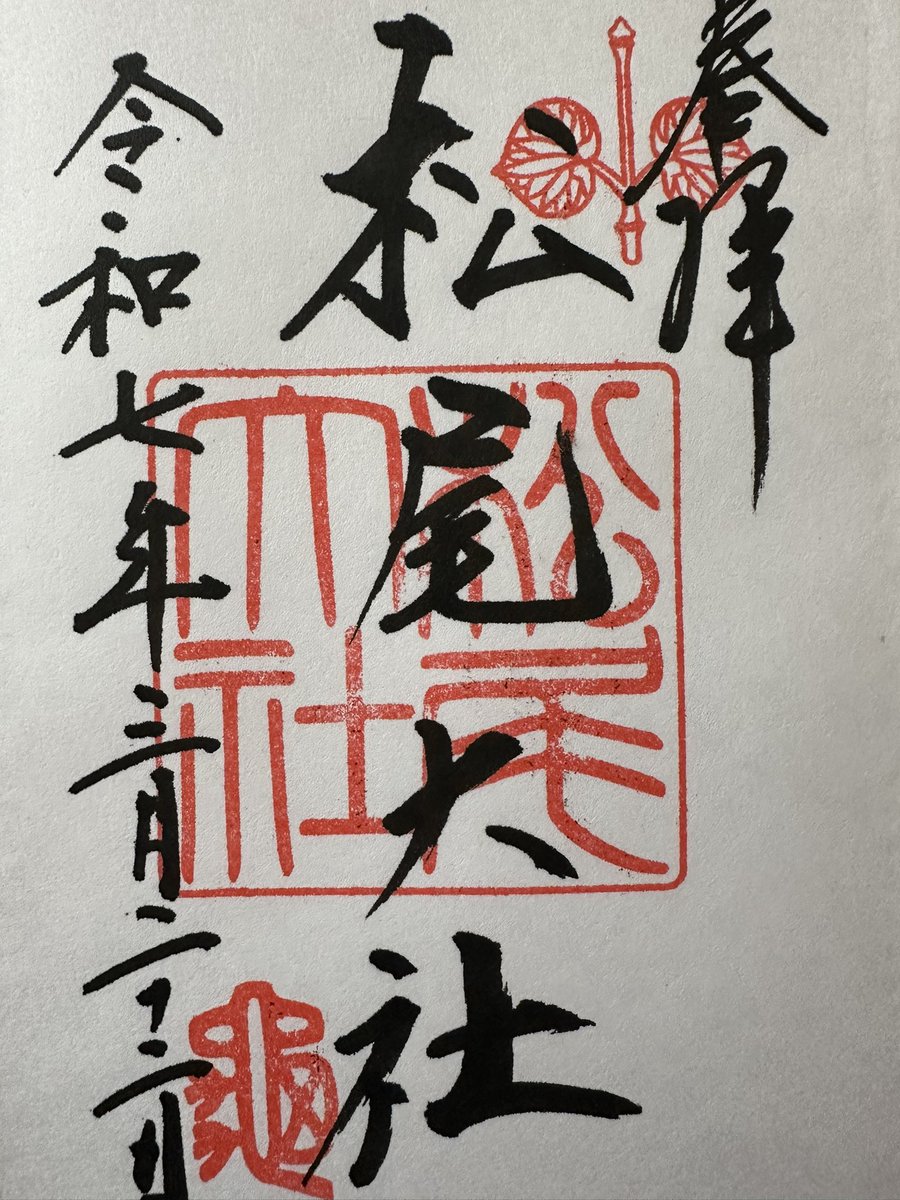 奉拝
松尾大社
令和七年三月二十二日
松尾大社